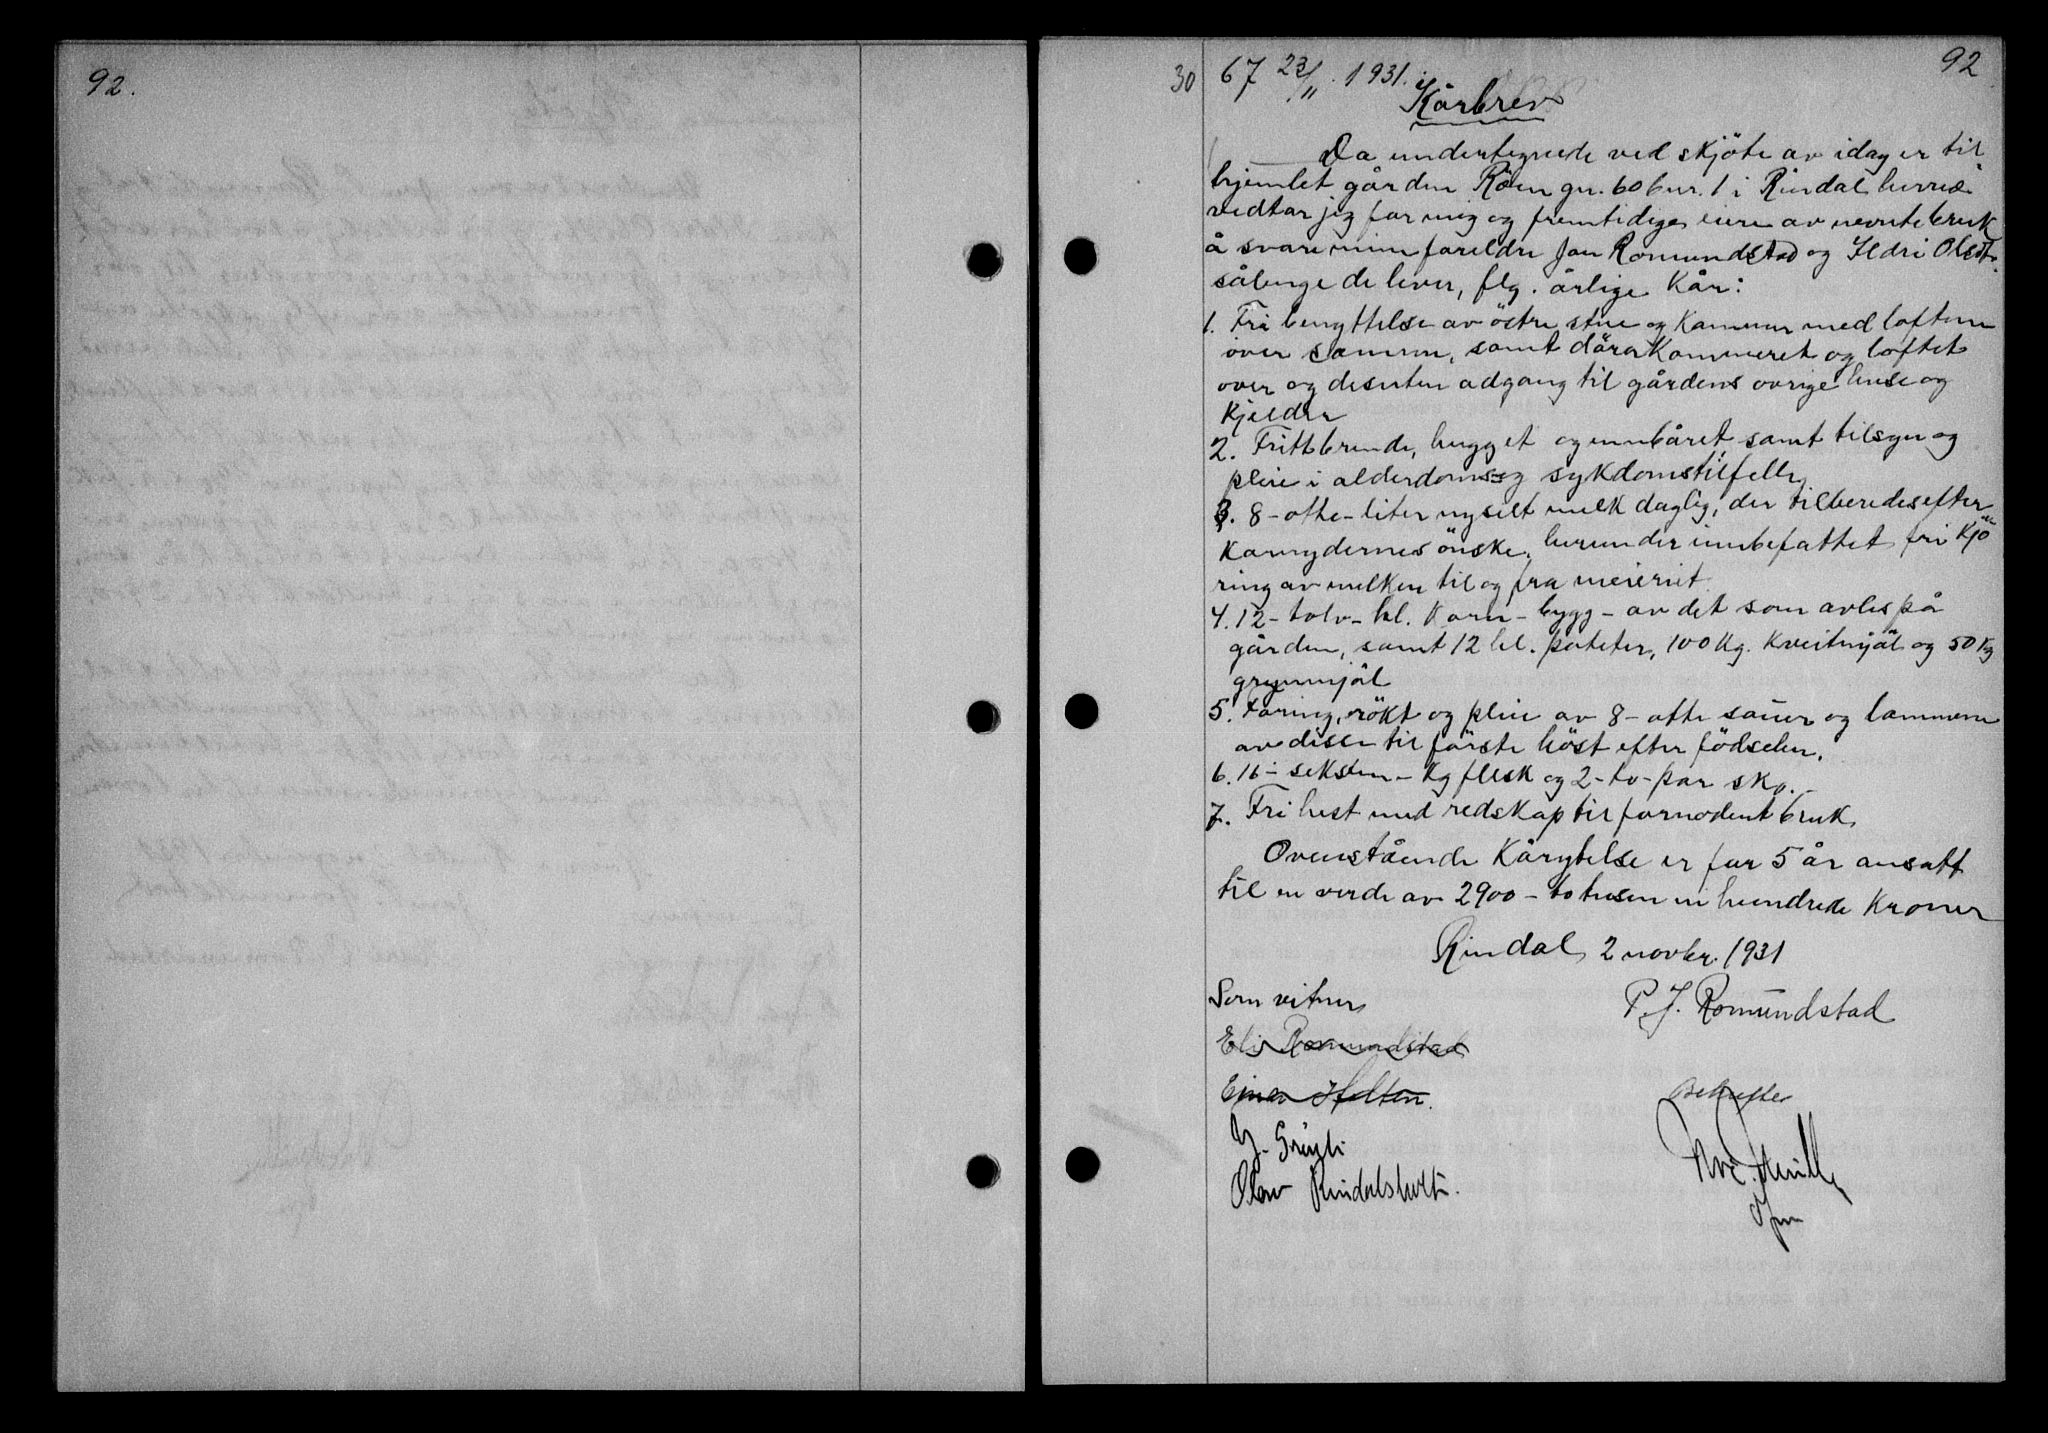 92.
92
30 67 23/11. 1931.
Kårbrev
Da undertegnede ved skjöte av idag er til-
hjemlet gården Röen gnr. 60 bnr. 1 i Rindal herred
vedtar jeg for mig og fremtidige eiere av nevnte bruk
å svare mine foreldre Jon Romundstad og Ildri Olsdtr.
sålenge de lever, flg. årlige Kår:
1. Fri benyttelse av östre stue og Kammer med loftene
over samme, samt döraKammeret og loftet
over og desuten adgang til gårdens övrige huse og
Kjelder
2. Fritt brende, hugget og innbåret samt tilsyn og
pleie i alderdoms og sykdomstilfelle,
3. 8-otte-liter nysilt melk daglig, der tilberedes efter
Kårnydernes önske, herunder innbefattet fri Kjö
ring av melken til og fra meieriet
4. 12-tolv-hl. Korn-bygg-av det som avles på
gården, samt 12 hl. poteter, 100 Kg. Kveitmjöl og 50 Kg
grynmjöl
5. Foring, rökt og pleie av 8-otte sauer og lammene
av disse til förste höst efter födselen.
6. 16-seksten-Kg flesk og 2-to-par sko.
7. Fri hest med redskap til fornödent bruk
Ovenstående Kårytelse er for 5 år ansatt
til en verdi av 2900-totusen ni hundrede Kroner
Rindal 2 novbr. 1931
Som vitner
P. J. Romundstad
Eli Romundstad
Einar Holten.
Bekreftes
Olav Rindalsholt.